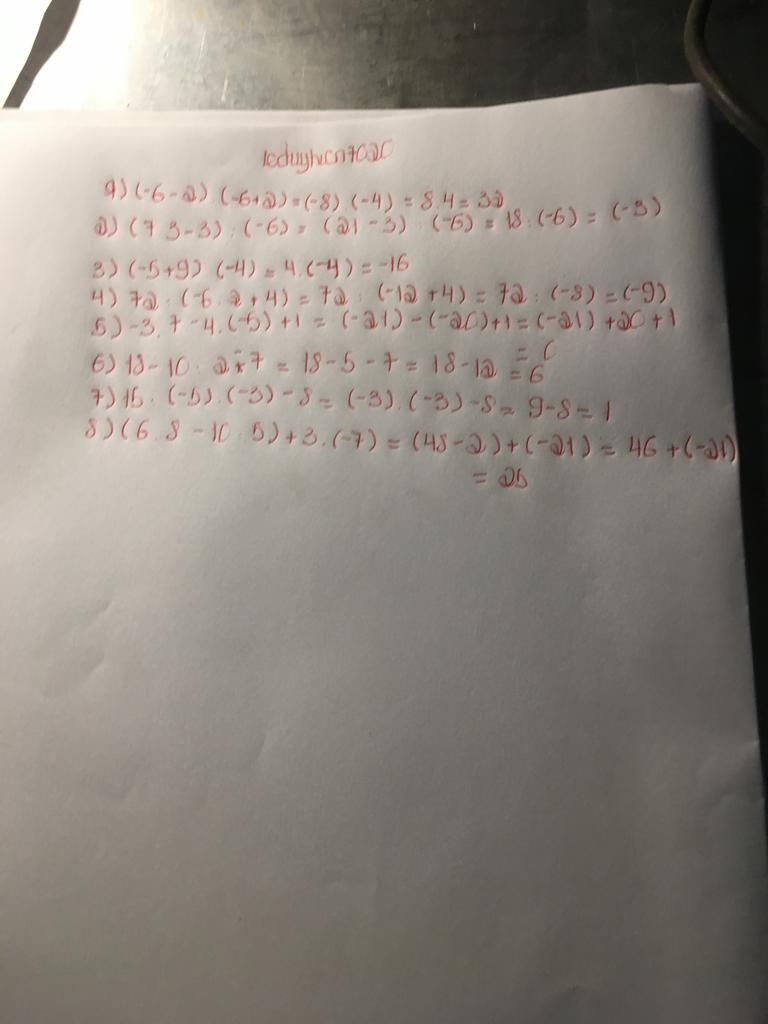 leduyhien7020
1) (-6-2) (-6+2) = (-8) (-4) = 8.4 = 32
2) (7 3-3) : (-6) = (21-3) : (-6) = 18 : (-6) = (-3)
3) (-5+9) (-4) = 4.(-4) = -16
4) 72 : (-6.2+4) = 72 : (-12+4) = 72 : (-8) = (-9)
5) -3.7-4.(-5)+1 = (-21)-(-20)+1 = (-21)+20+1
= 0
6) 18-10 : 2-7 = 18-5-7 = 18-12
= 6
7) 15 : (-5).(-3)-8 = (-3).(-3)-8 = 9-8 = 1
8) (6.8-10:5)+3.(-7) = (48-2)+(-21) = 46+(-21)
= 25